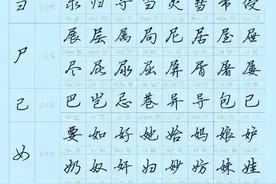 彐 录 归 寻 当 灵 帚
尸 展 层 属 局 尼 居 屋 屉
尽 尿 屈 屏 屑 屠 屡
己 巴 岂 忌 巷 异 导 包 已
女 要 如 好 她 始 妈 娘 妒
奶 奴 奸 妇 妙 妨 妹 娃